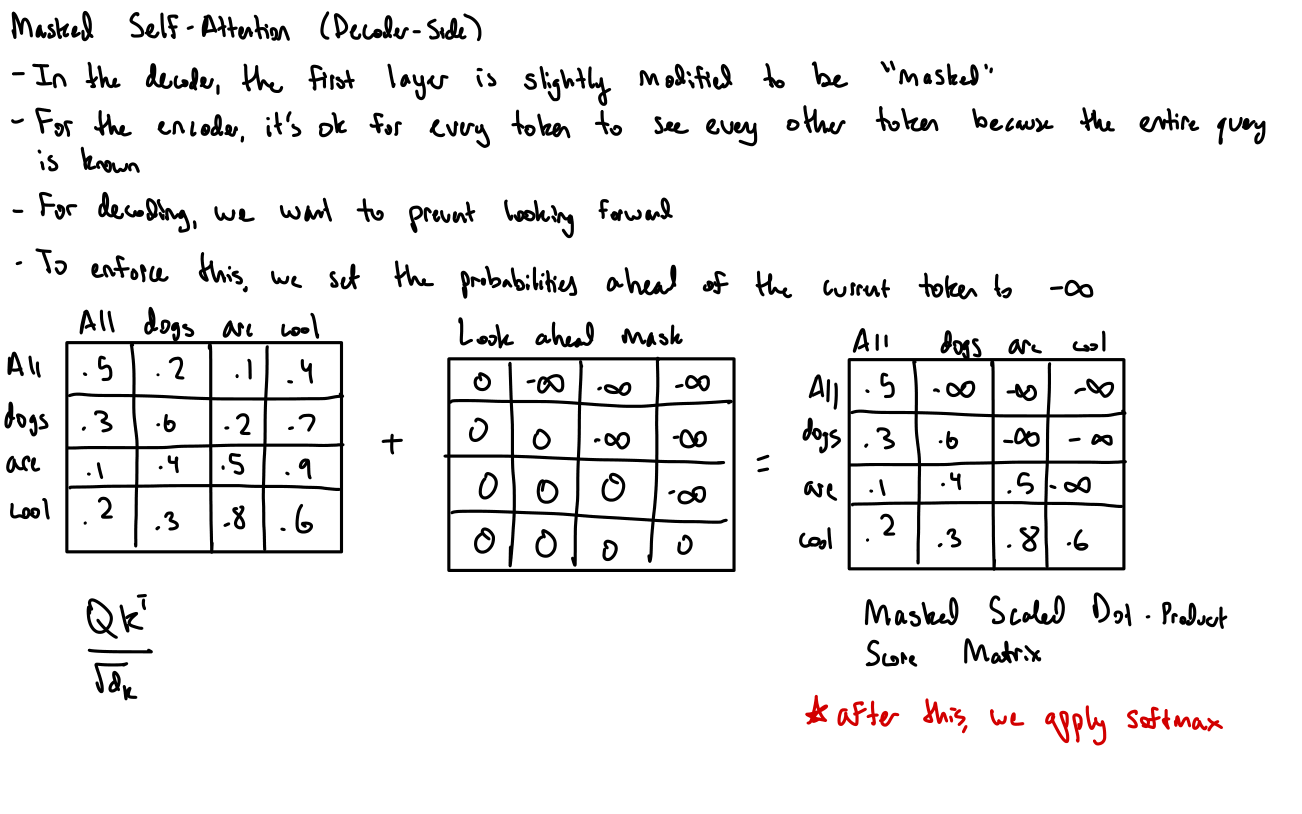 Masked Self-Attention (Decoder-Side)
- In the decoder, the first layer is slightly modified to be "masked"
- For the encoder, it's ok for every token to see every other token because the entire query
is known
- For decoding, we want to prevent looking forward
- To enforce this, we set the probabilities ahead of the current token to -∞
All dogs are cool
All .5 .2 .1 .4
dogs .3 .6 .2 .7
are .1 .4 .5 .9
cool .2 .3 .8 .6
QK^T
√d_k
+
Look ahead mask
0 -∞ -∞ -∞
0 0 -∞ -∞
0 0 0 -∞
0 0 0 0
=
All dogs are cool
All .5 -∞ -∞ -∞
dogs .3 .6 -∞ -∞
are .1 .4 .5 -∞
cool .2 .3 .8 .6
Masked Scaled Dot-Product
Score Matrix
* after this, we apply softmax